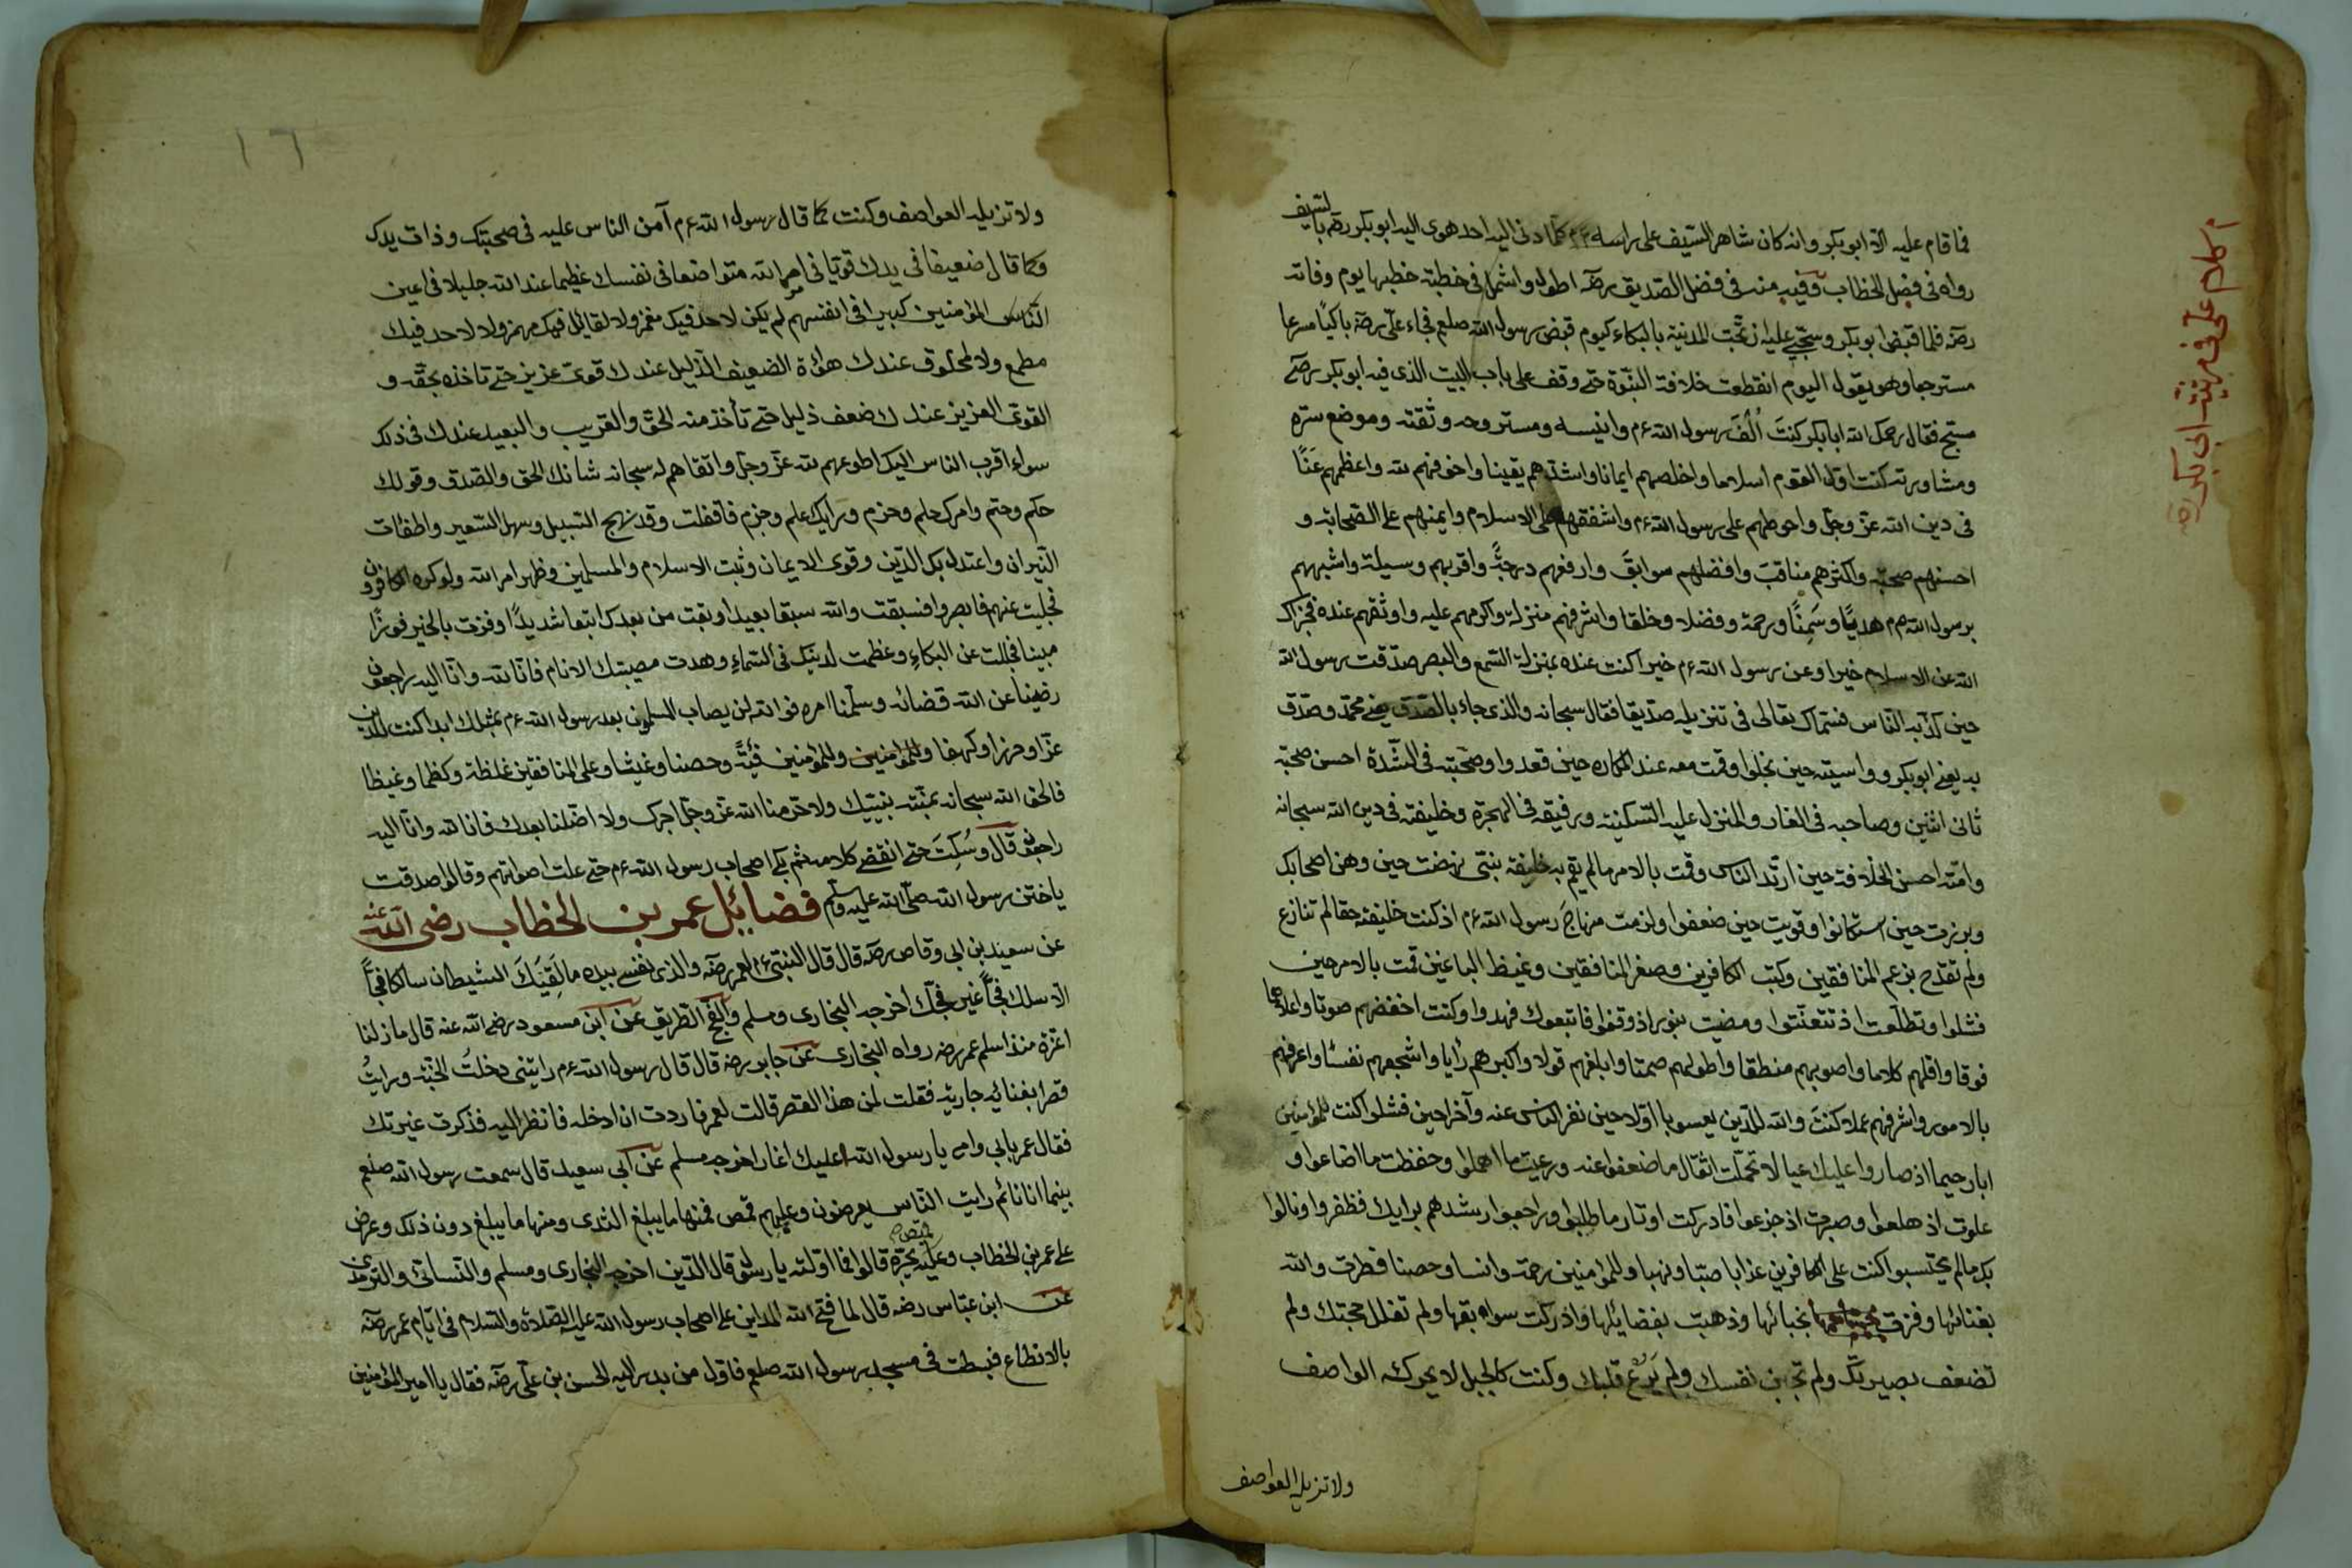 فما قام عليه الا ابو بكر وانه كان شاهر السيف على راسه ء م كلما دنى اليه احد هوى اليه ابو بكر رضه بالسيف
رواه فى فضل الخطاب وفيه منه فى فضل الصديق رضه اطول واشمل فى خطبته خطبها يوم وفاته
رضه فلما قبض ابو بكر وسجى عليه ارتجت المدينة بالبكاء كيوم قبض رسول الله صلعم فجاء على رضه باكيا مسرعا
مسترجعا وهو يقول اليوم انقطعت خلافة النبوة حتى وقف على باب البيت الذى فيه ابو بكر رضه
مسجى فقال رحمك الله ابا بكر كنت الف رسول الله ءم وانيسه ومستروحه وثقته وموضع سره
ومشاورته كنت اول القوم اسلاما واخلصهم ايمانا واشدهم يقينا واخوفهم لله واعظمهم غنا
فى دين الله عز وجل واحوطهم على رسول الله ءم واشفقهم على الاسلام وايمنهم على الصحابة و
احسنهم صحبة واكثرهم مناقب وافضلهم سوابق وارفعهم درجة واقربهم وسيلة واشبههم
برسول الله ءم هديا وسمتا ورحمة وفضلا وخلقا واشرفهم منزلة واكرمهم عليه واوثقهم عنده فجزاك
الله عن الاسلام خيرا وعن رسول الله ءم خيرا كنت عنده بمنزلة السمع والبصر صدقت رسول الله
حين كذبه الناس فسماك تعالى فى تنزيله صديقا فقال سبحانه والذى جاء بالصدق يعنى محمد وصدق
به يعنى ابو بكر وواسيته حين بخلوا وقمت معه عند المكاره حين قعدوا وصحبته فى الشدة احسن صحبة
ثانى اثنين وصاحبه فى الغار والمنزل عليه السكينة ورفيقه فى الهجرة وخليفته فى دين الله سبحانه
وامته احسن الخلافة حين ارتد الناس وقمت بالامر ما لم يقم به خليفة نبى نهضت حين وهن اصحابك
وبرزت حين استكانوا وقويت حين ضعفوا ولزمت منهاج رسول الله ءم اذ كنت خليفته حقا لم تنازع
ولم تقدح بزعم المنافقين وكبت الكافرين وصغر المنافقين وغيظ الباغين قمت بالامر حين
فشلوا وتطلعت اذ تتعتعوا ومضيت بنور اذ وقفوا فاتبعوك فهدوا وكنت اخفضهم صوتا واعلاهم
فوقا واقلهم كلاما واصوبهم منطقا واطولهم صمتا وابلغهم قولا واكبرهم رايا واشجعهم نفسا واعرفهم
بالامور واشرفهم عملا كنت والله للدين يعسوبا اولا حين نفر الناس عنه وآخرا حين فشلوا كنت للمؤمنين
ابا رحيما اذ صاروا عليك عيالا تحملت اثقال ما ضعفوا عنه ورعيت ما اهملوا وحفظت ما اضاعوا و
علوت اذ هلعوا وصبرت اذ جزعوا فادركت اوتار ما طلبوا وراجعوا رشدهم برايك فظفروا ونالوا
بك ما لم يحتسبوا كنت على الكافرين عذابا صبا ونهبا وللمؤمنين رحمة وانسا وحصنا فطرت والله
بغنائها وفزت بحبائها وذهبت بفضايلها وادركت سوابقها ولم تفلل حجتك ولم
تضعف بصيرتك ولم تجبن نفسك ولم يرع قلبك وكنت كالجبل لا يحركه الواصف
ولا تزيله العواصف
كلام على فى مرثية ابى بكر رضه
١٦
ولا تزيله العواصف وكنت كما قال رسول الله ءم آمن الناس عليه فى صحبتك وذات يدك
وكما قال ضعيفا فى بدنك قويا فى امر الله متواضعا فى نفسك عظيما عند الله جليلا فى اعين
الناس المؤمنين كبيرا فى انفسهم لم يكن لاحد فيك مغمز ولا لقائل فيك مهمز ولا لاحد فيك
مطمع ولا لمخلوق عندك هوادة الضعيف الذليل عندك قوى عزيز حتى تاخذ بحقه و
القوى العزيز عندك ضعف ذليل حتى تأخذ منه الحق والقريب والبعيد عندك فى ذلك
سواء اقرب الناس اليك اطوعهم لله عز وجل واتقاهم له سبحانه شانك الحق والصدق وقولك
حكم وحتم وامرك حلم وحزم ورايك علم وجزم فاقفلت وقد نهج السبيل وسهل السعير واطفات
النيران واعتدل بك الدين وقوى الايمان وثبت الاسلام والمسلمين وظهر امر الله ولو كره الكافرون
فجليت عنهم فابصروا فسبقت والله سبقا بعيدا وتعبت من بعدك اتبعا شديدا وفزت بالخير فوزا
مبينا فجللت عن البكاء وعظمت لدينك فى السماء وهدت مصيبتك الانام فانا لله وانا اليه راجعون
رضينا عن الله قضائه وسلمنا امره فوالله لن يصاب المسلمون بعد رسول الله ءم بمثلك ابدا كنت للدين
عزا وحرزا وكهفا وللمؤمنين وللمؤمنين فية وحصنا وغيثا وعلى المنافقين غلظة وكظما وغيظا
فالحق الله سبحانه بمنته بنبيك ولا حرمنا الله عز وجل اجرك ولا اضلنا بعدك فانا لله وانا اليه
راجعون قال وسكت حتى انقضى كلامه ثم بكى اصحاب رسول الله ءم حتى علت اصواتهم وقالوا صدقت
ياختن رسول الله صلى الله عليه وسلم فضائل عمر بن الخطاب رضى الله عنه
عن سعيد بن ابى وقاص رضه قال قال النبى ءم لعمر رضه والذى نفسى بيده ما لقيك الشيطان سالكا فجا
الا سلك فجا غير فجك اخرجه البخارى ومسلم والفج الطريق عن ابن مسعود رضى الله عنه قال ما زلنا
اعزة منذ اسلم عمر رضه رواه البخارى عن جابر رضه قال قال رسول الله ءم راتينى دخلت الجنة ورايت
قصرا بفنائه جارية فقلت لمن هذا القصر قالت لعمر فاردت ان ادخله فانظر اليه فذكرت غيرتك
فقال عمر بابى وامى يا رسول الله اعليك اغار اخرجه مسلم عن ابى سعيد قال سمعت رسول الله صلعم
بينما انا نائم رايت الناس يعرضون وعليهم قمص فمنها ما يبلغ الثدى ومنها ما يبلغ دون ذلك وعرض
على عمر بن الخطاب وعليه قميص يجره قالوا فما اولته يا رسول الله قال الدين اخرجه البخارى ومسلم والنسائى والترمذى
عن ابن عباس رضه قال لما فتح الله المداين على اصحاب رسول الله عليه الصلاة والسلام فى ايام عمر رضه
بالانطاع فبسطت فى مسجد رسول الله صلعم فاول من بدر اليه الحسن بن على رضه فقال يا امير المؤمنين